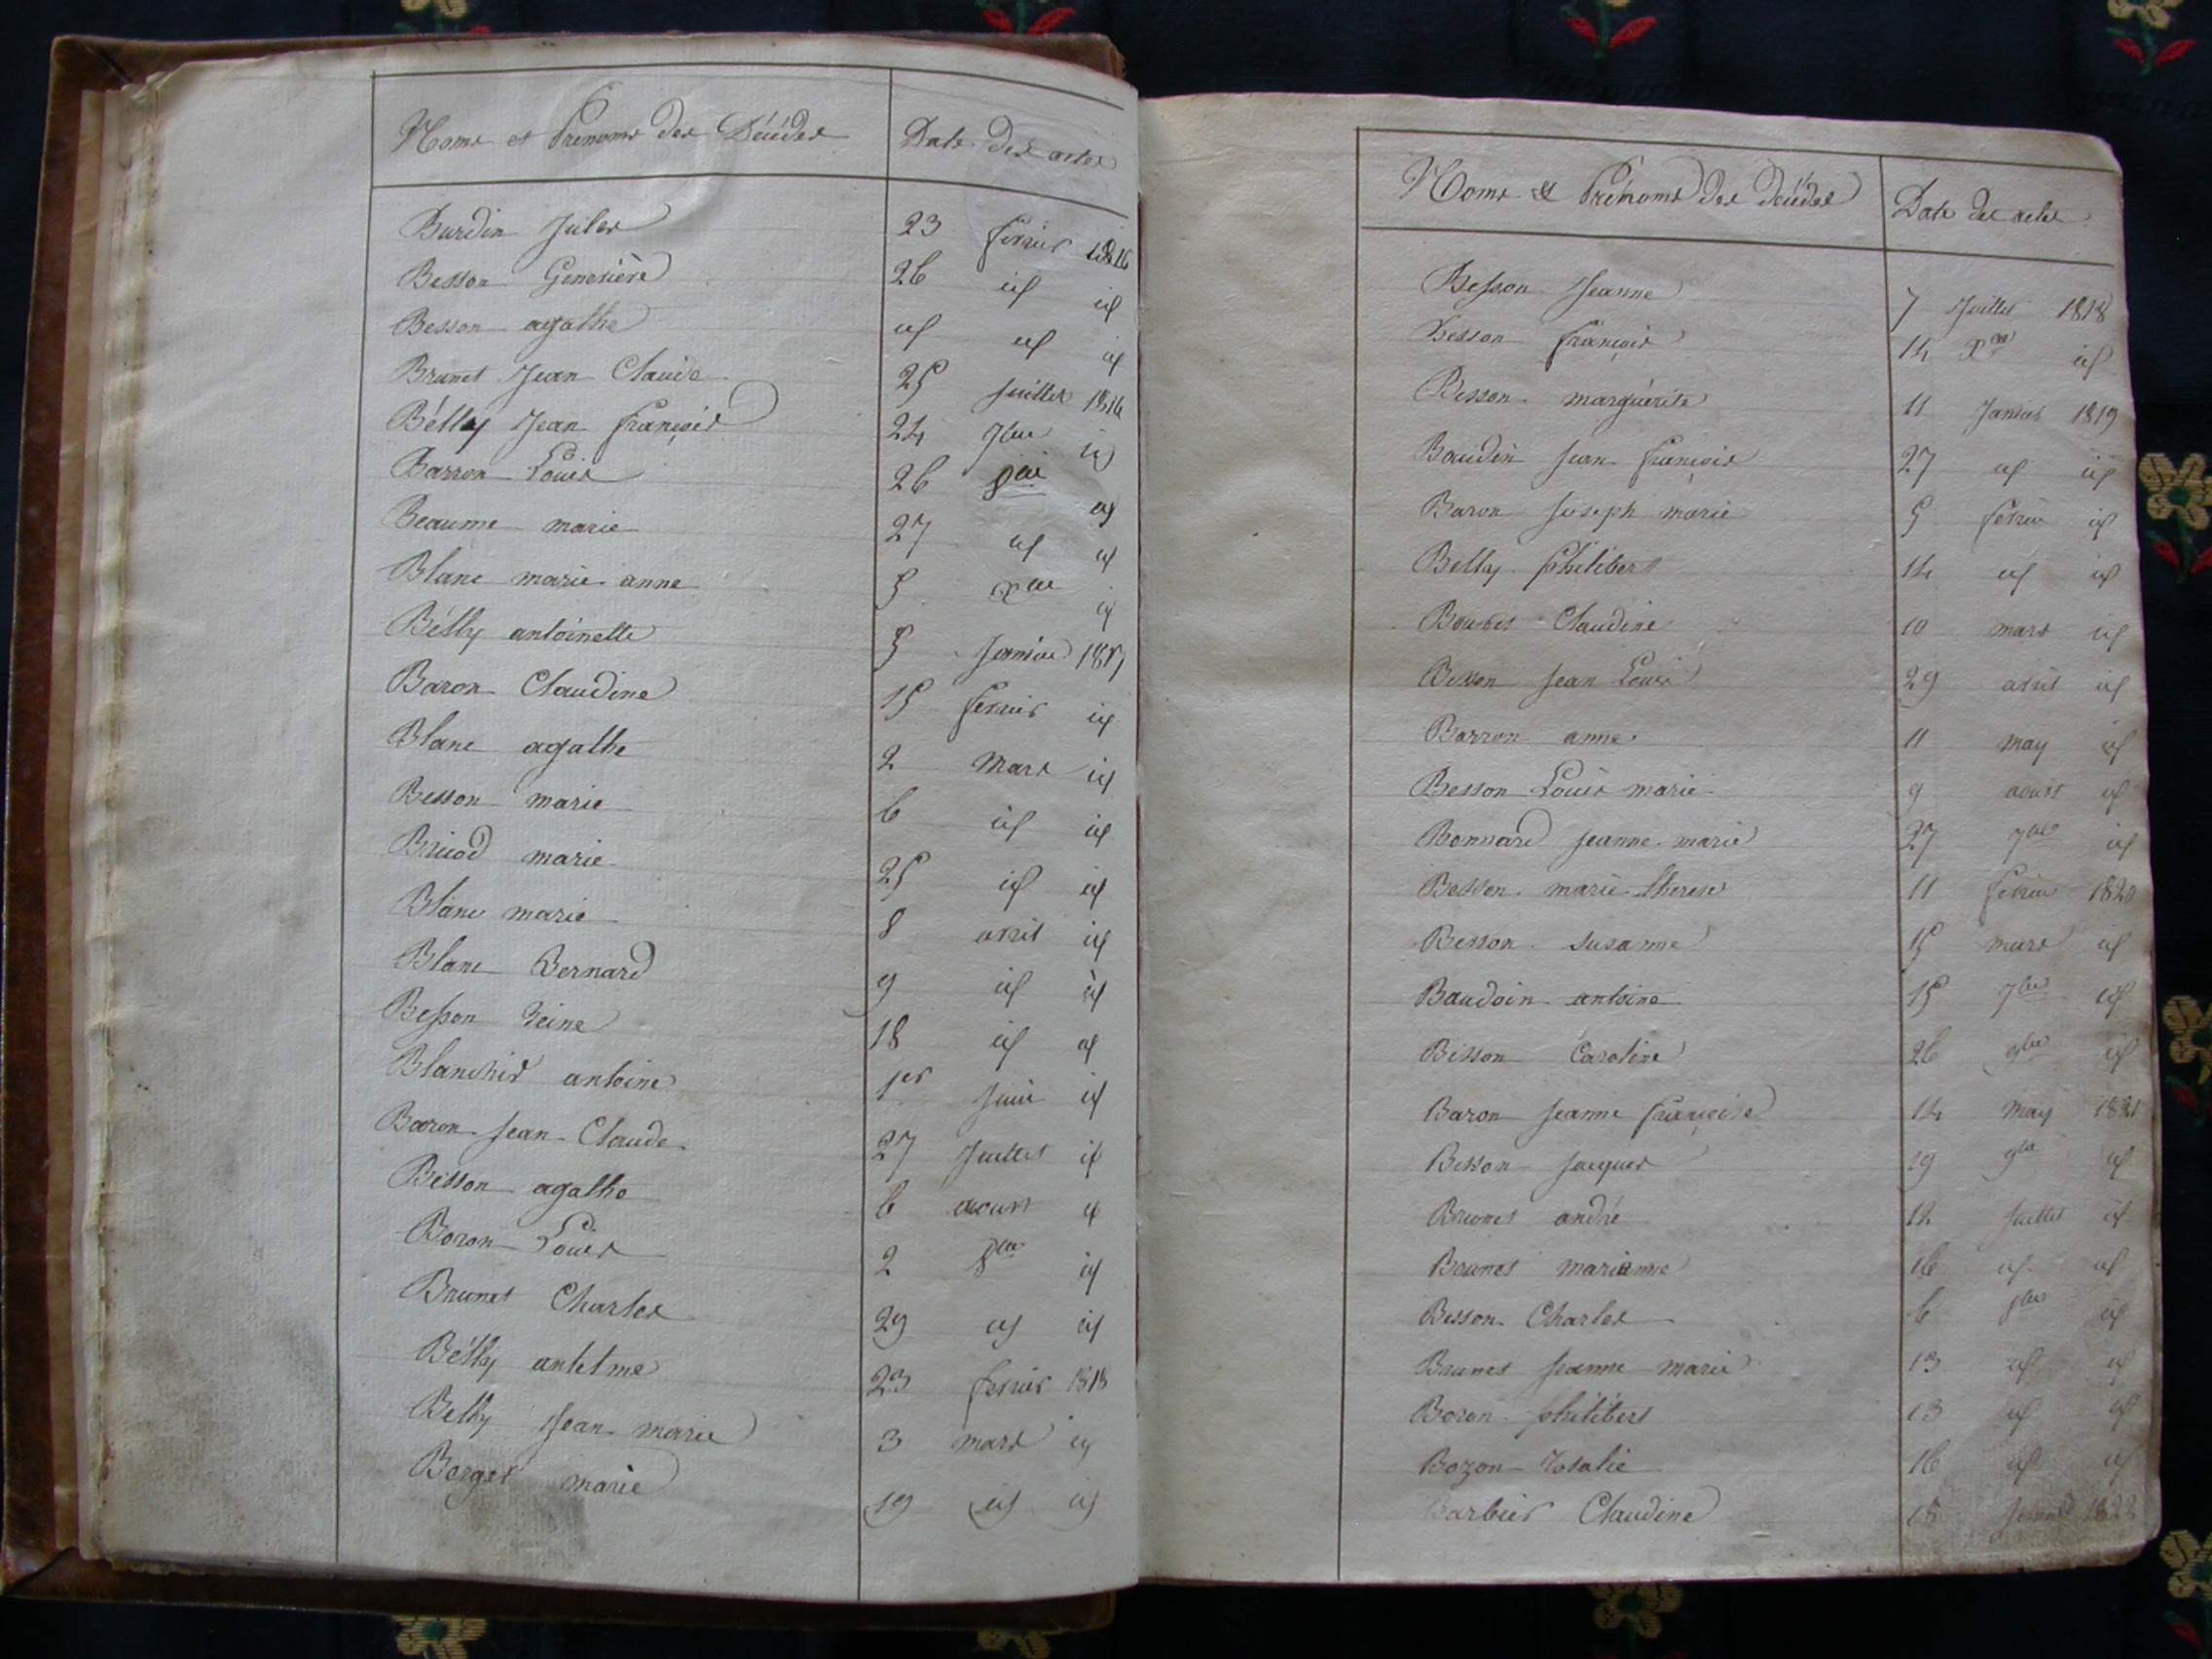 Noms et Prénoms des Décédés Date des actes
Burdin Jules 23 fevrier 1816
Besson Genevière 26 id id
Besson agathe id id id
Brunet Jean Claude 25 juillet 1816
Bétty Jean françois 24 7bre id
Barron Louis 26 8bre id
Beaume marie 27 id id
Blanc marie anne 5 Xbre id
Bétty antoinette 5 Janvier 1817
Baron Claudine 15 fevrier id
Blanc agathe 2 Mars id
Besson marie 6 id id
Bricod marie 25 id id
Blanc marie 8 avril id
Blanc Bernard 9 id id
Besson Reine 18 id id
antoine 1er Juin id
Baron Jean Claude 27 Juillet id
Besson agathe 6 aoust id
Boron Louis 2 8bre id
Brunet Charles 29 id id
Bétty antelme 23 fevrier 1818
Betty Jean marie 3 mars id
Berger marie 19 id id
Noms & Prénoms des décédés Date des actes
Besson Jeanne 7 Juillet 1818
Besson françois 14 Xbre id
Besson marguerite 11 Janvier 1819
Baudin Jean françois 27 id id
Baron Joseph marie 5 fevrier id
Betty philibert 14 id id
Claudine 10 mars id
Besson Jean Louis 29 avril id
Barron anne 11 may id
Besson Louis marie 9 aoust id
Bonnard jeanne marie 27 7bre id
Besson marie therese 11 fevrier 1820
Besson susanne 15 mars id
Baudoin antoine 15 7bre id
Besson Caroline 26 9bre id
Baron Jeanne françoise 14 May 1821
Besson Jacques id
Brunet andré juillet id
Brunet marianne 16 id id
Besson Charles 6 8bre id
Brunet jeanne marie 13 id id
Boron philibert 13 id id
Bozon Rosalie 16 id id
Barbier Claudine 18 1822